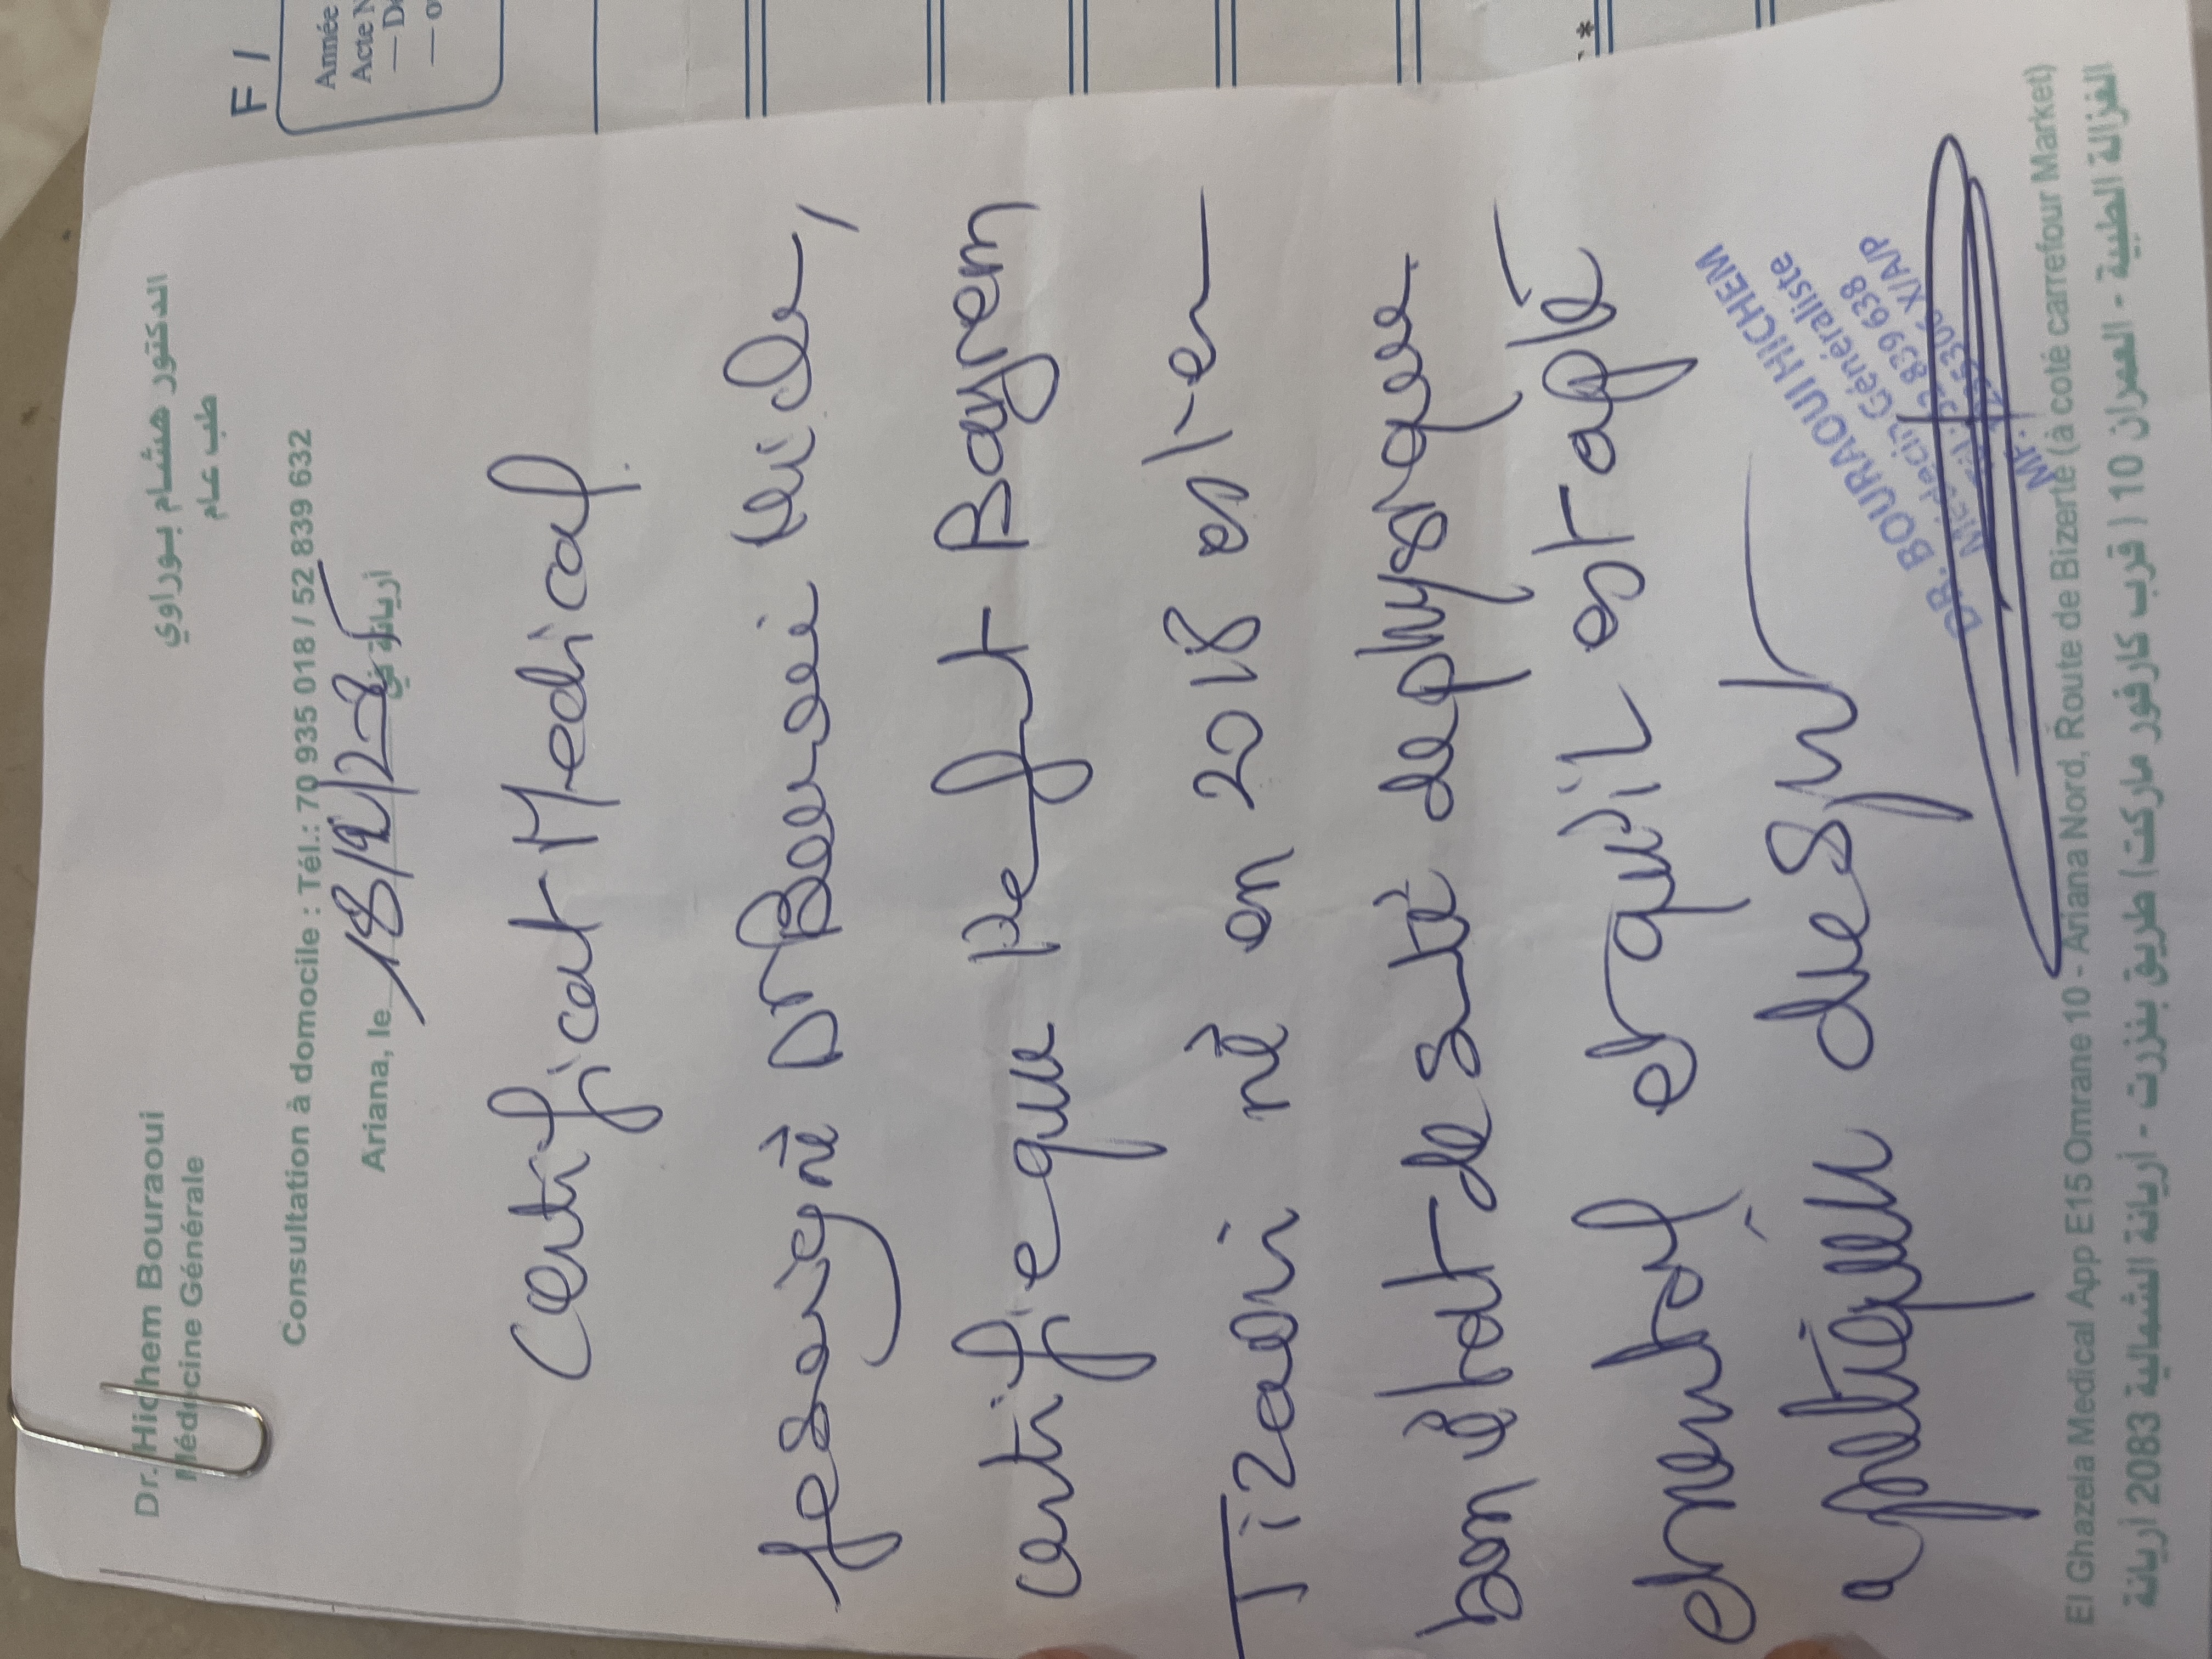 Dr. Hichem Bouraoui
Médecine Générale
الدكتور هشام بوراوي
طب عام
Consultation à domocile : Tél.: 70 935 018 / 52 839 632
Ariana, le 18/12/ أريانة في
Certificat Médical
Je soussigné Dr Bouraoui Hichem,
certifie que le fut Bayrem
Tizaoui né en 2018 est en
bon état de santé physique
et mental et qu'il est apte
à pratiquer du sport
DR. BOURAOUI HICHEM
Médecin Généraliste
52 839 638
X/A/P
El Ghazela Medical App E15 Omrane 10 - Ariana Nord, Route de Bizerte (à coté carrefour Market)
الغزالة الطبية - العمران 10 ( قرب كارفور ماركت) طريق بنزرت - أريانة الشمالية 2083 أريانة
F 1
Année
Acte N